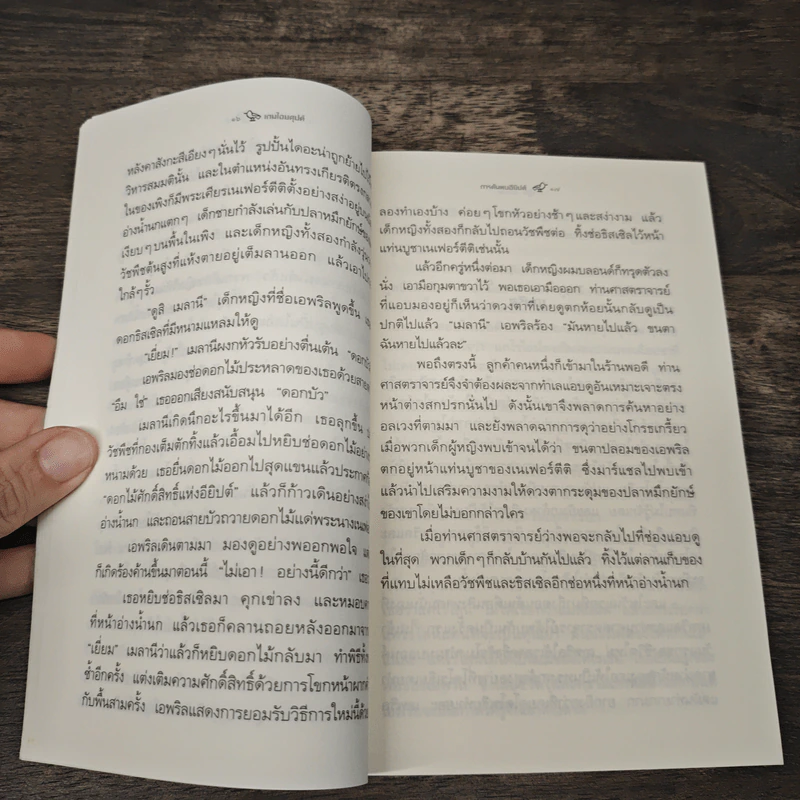 ๑๖ เกมไอยคุปต์
หลังคาสังกะสีเอียงๆ นั่นไว้ รูปปั้นไดอะน่าถูกย้ายไปไว้
วิหารสมมตินั้น และในตำแหน่งอันทรงเกียรติตรงกลาง
ในของเพิงก็มีพระเศียรเนเฟอร์ตีติตั้งอย่างสง่าอยู่บน
อ่างน้ำนกแตกๆ เด็กชายกำลังเล่นกับปลาหมึกยักษ์ของ
เงียบๆ บนพื้นในเพิง และเด็กหญิงทั้งสองกำลัง
วัชพืชต้นสูงที่แห้งตายอยู่เต็มลานออก แล้วเอาไป
ใกล้ๆ รั้ว
“ดูสิ เมลานี” เด็กหญิงที่ชื่อเอพริลพูดขึ้น
ดอกธิสเซิลที่มีหนามแหลมให้ดู
“เยี่ยม!” เมลานีผงกหัวรับอย่างตื่นเต้น
เอพริลมองช่อดอกไม้ประหลาดของเธอด้วยสาย
“อืม ใช่” เธอออกเสียงสนับสนุน “ดอกบัว”
เมลานีเกิดนึกอะไรขึ้นมาได้อีก เธอลุกขึ้น
วัชพืชที่กองเต็มตักทิ้งแล้วเอื้อมไปหยิบช่อดอกไม้
หนามด้วย เธอยื่นดอกไม้ออกไปสุดแขนแล้วประกาศ
“ดอกไม้ศักดิ์สิทธิ์แห่งอียิปต์” แล้วก็ก้าวเดินอย่าง
อ่างน้ำนก และถอนสายบัวถวายดอกไม้แด่พระนาง
เอพริลเดินตามมา มองดูอย่างพออกพอใจ
ก็เกิดร้องค้านขึ้นมาตอนนี้ “ไม่เอา! อย่างนี้ดีกว่า”
เธอหยิบช่อธิสเซิลมา คุกเข่าลง และหมอบ
ที่หน้าอ่างน้ำนก แล้วเธอก็คลานถอยหลังออกมา
“เยี่ยม” เมลานีว่าแล้วก็หยิบดอกไม้กลับมา ทำพิธี
ซ้ำอีกครั้ง แต่งเติมความศักดิ์สิทธิ์ด้วยการโขกหน้าผาก
กับพื้นสามครั้ง เอพริลแสดงการยอมรับวิธีการใหม่นี้ด้วย
๑๗
ลองทำเองบ้าง ค่อยๆ โขกหัวอย่างช้าๆ และสง่างาม แล้ว
เด็กหญิงทั้งสองก็กลับไปถอนวัชพืชต่อ ทิ้งช่อธิสเซิลไว้หน้า
แท่นบูชาเนเฟอร์ตีติเช่นนั้น
แล้วอีกครู่หนึ่งต่อมา เด็กหญิงผมบลอนด์ก็ทรุดตัวลง
นั่ง เอามือกุมตาขวาไว้ พอเธอเอามือออก ท่านศาสตราจารย์
ที่แอบมองอยู่ก็เห็นว่าดวงตาที่เคยดูตกห้อยนั้นกลับดูเป็น
ปกติไปแล้ว “เมลานี” เอพริลร้อง “มันหายไปแล้ว ขนตา
ฉันหายไปแล้วละ”
พอถึงตรงนี้ ลูกค้าคนหนึ่งก็เข้ามาในร้านพอดี ท่าน
ศาสตราจารย์จึงจำต้องผละจากทำเลแอบดูอันเหมาะเจาะตรง
หน้าต่างสกปรกนั่นไป ดังนั้นเขาจึงพลาดการค้นหาอย่าง
อลเวงที่ตามมา และยังพลาดฉากการดุว่าอย่างโกรธเกรี้ยว
เมื่อพวกเด็กผู้หญิงพบเข้าจนได้ว่า ขนตาปลอมของเอพริล
ตกอยู่หน้าแท่นบูชาของเนเฟอร์ตีติ ซึ่งมาร์แชลไปพบเข้า
แล้วนำไปเสริมความงามให้ดวงตากระดุมของปลาหมึกยักษ์
ของเขาโดยไม่บอกกล่าวใคร
เมื่อท่านศาสตราจารย์ว่างพอจะกลับไปที่ช่องแอบดู
ในที่สุด พวกเด็กๆ ก็กลับบ้านกันไปแล้ว ทิ้งไว้แต่ลานเก็บของ
ที่แทบไม่เหลือวัชพืชและธิสเซิลอีกช่อหนึ่งที่หน้าอ่างน้ำนก